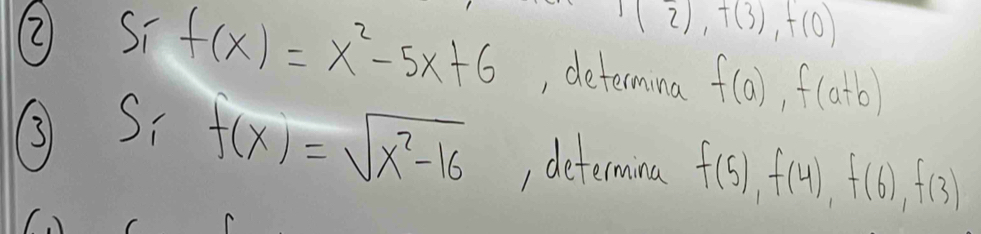 2), f(3), f(0)
② Si f(x) = x² - 5x + 6 , determina f(a), f(a+b)
③ Si f(x) = √(x² - 16) , determina f(5), f(4), f(6), f(3)